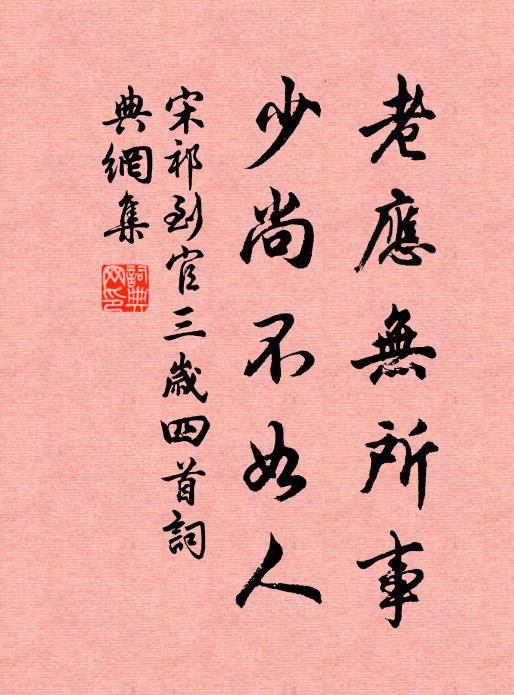 老應無所事
少尚不如人
宋祁到官三歲四首詞
典網集
詞典
网印